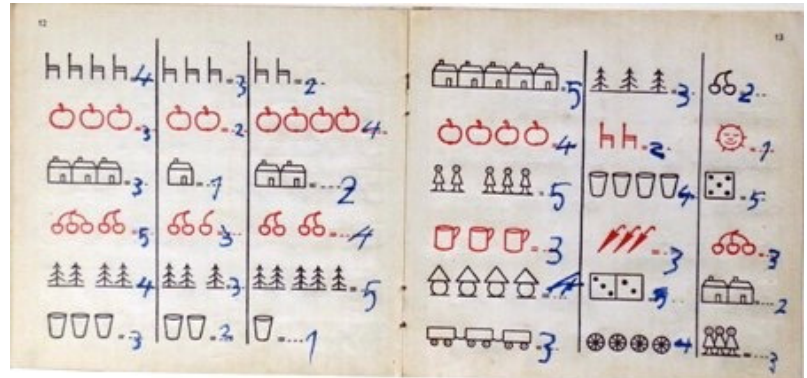 12
4 = 3 = 2
= 3 = 2 4
= 3 = 1 = 2
= 5 3 = 4
4 = 3 = 5
= 3 = 2 = 1
13
= 5 = 3 2
= 4 = 2 = 1
= 5 4 = 5
= 3 = 3 = 3
= 4 5 = 2
3 = 4 = 3